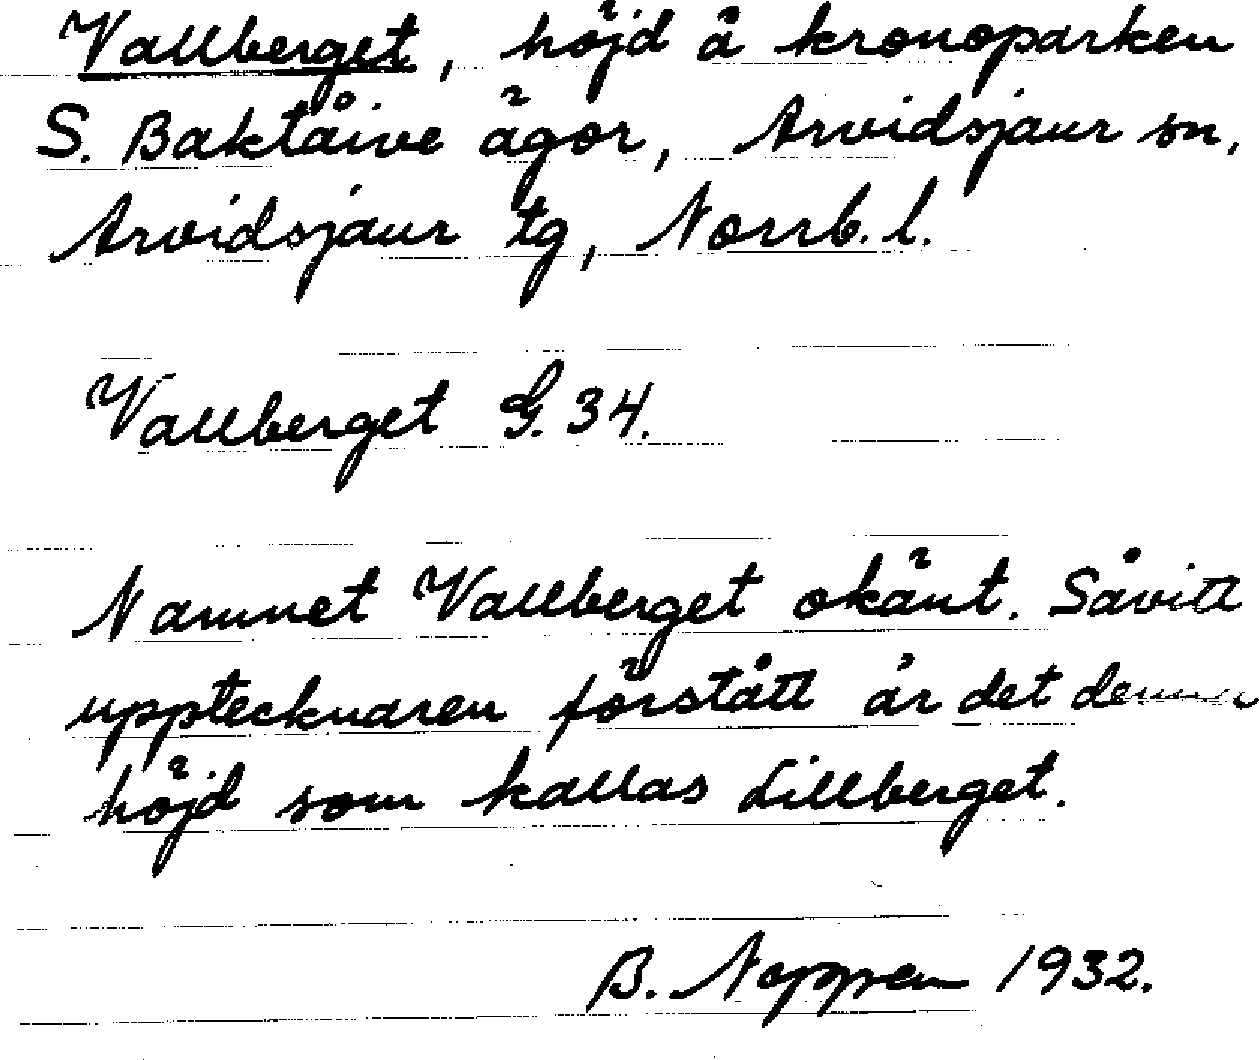 Vallberget, höjd å kronoparken
S. Baktåive ägor, Arvidsjaur sn,
Arvidsjaur tg, Norrb. l.
Vallberget G. 34.
Namnet Vallberget okänt. Såvitt
upptecknaren förstått är det denna
höjd som kallas Lillberget.
B. Noppen 1932.